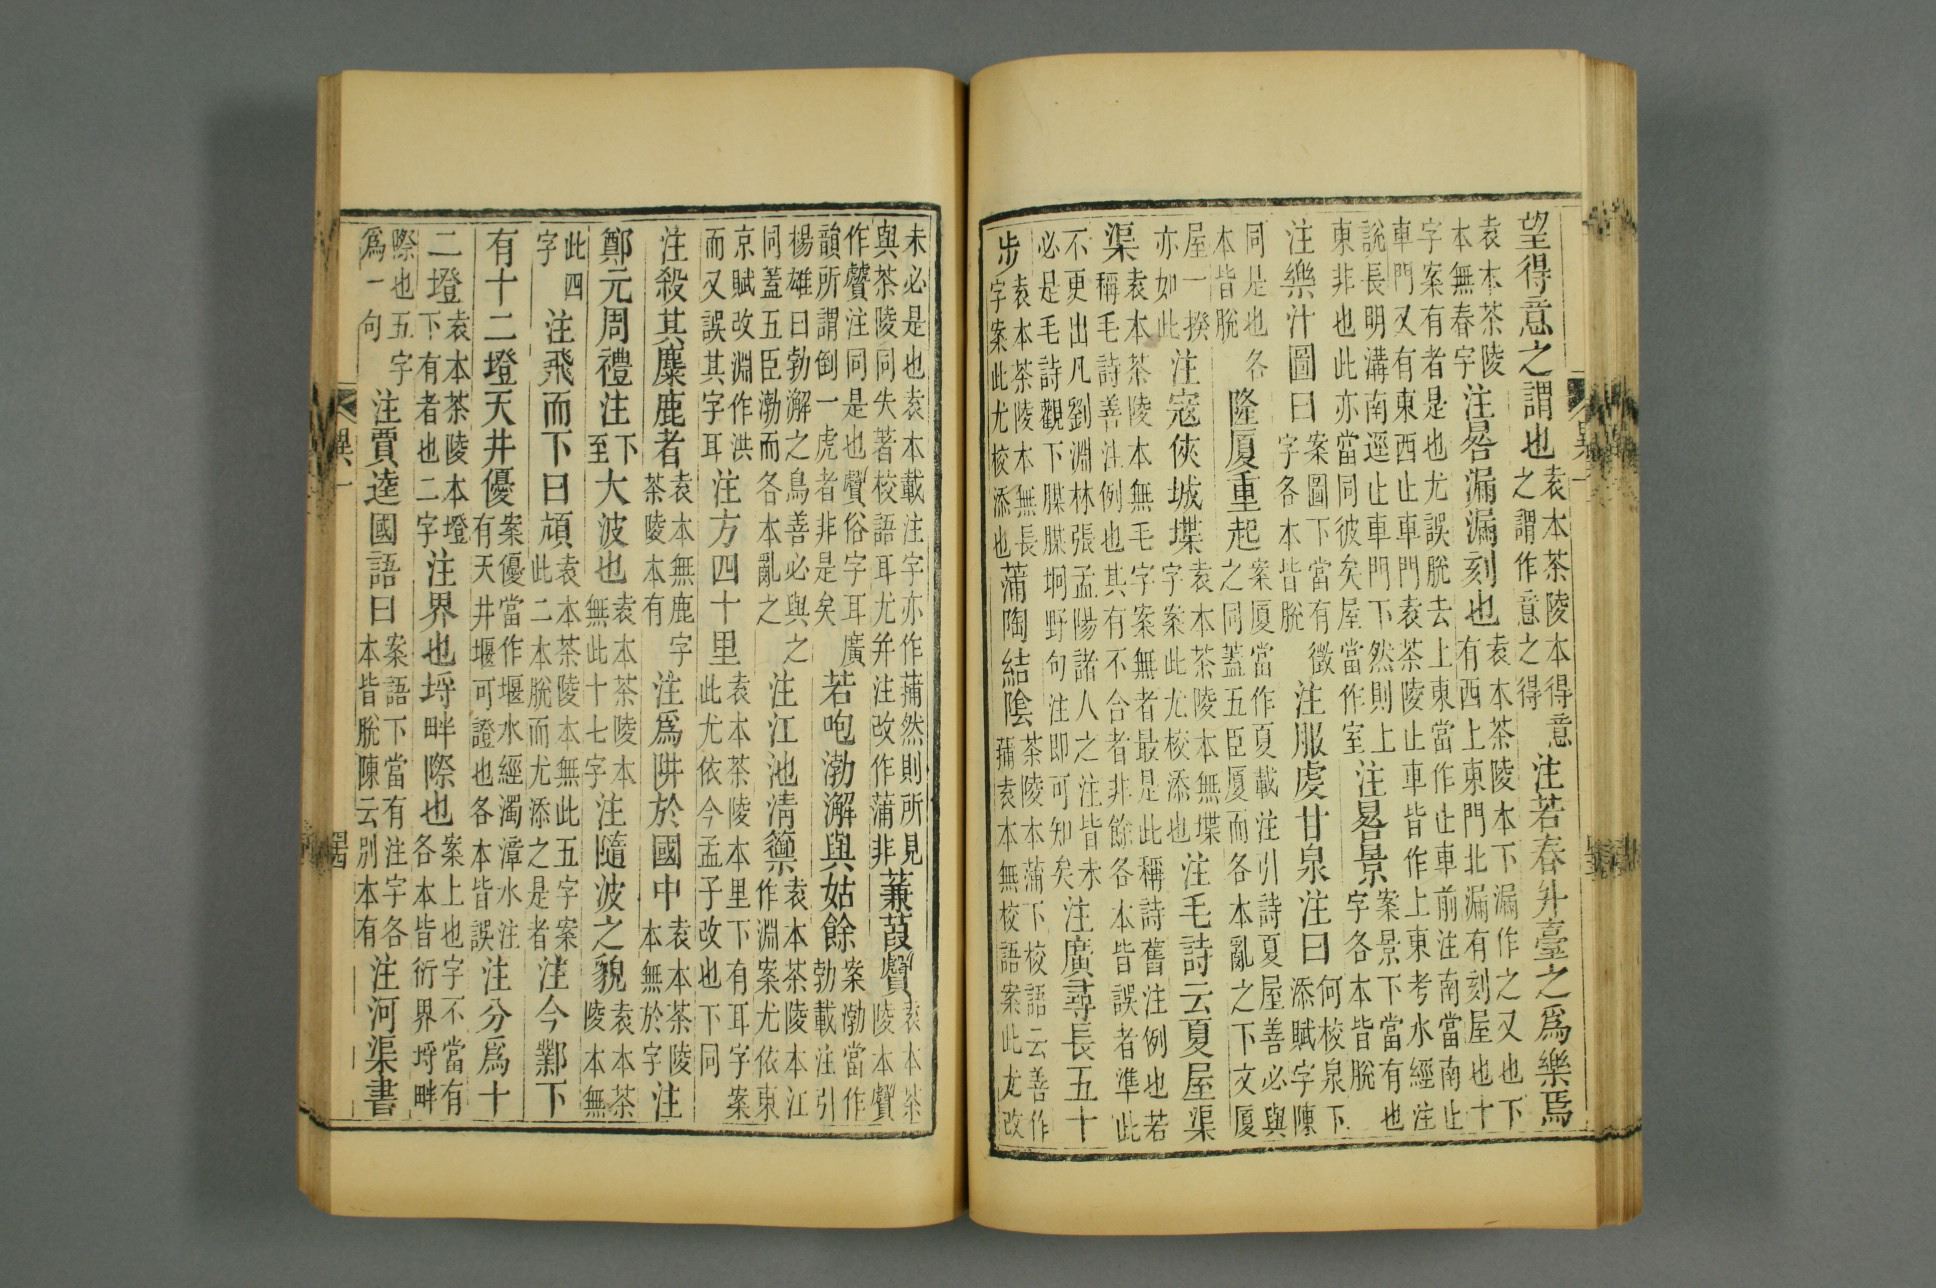 望得意之謂也袁本茶陵本得意之謂作意之得注若春升臺之爲樂焉
袁本茶陵本無春字注晷漏漏刻也袁本茶陵本下漏作之又也下有西上東門北漏有刻屋也十
字案有者是也尤誤脫去上東當作止車前注南當南止車門又有東西止車門袁茶陵止車皆作上東考水經注
說長明溝南逕止車門下然則上東非也此亦當同彼矣屋當作室注晷景案景下當有也字各本皆脫
注樂汁圖曰案圖下當有徵字各本皆脫注服虔甘泉注曰何校泉下添賦字陳
同是也各本皆脫隆厦重起案厦當作夏載注引詩夏屋善必與之同蓋五臣厦而各本亂之下文厦
屋一揆亦如此注寇俠城堞袁本茶陵本無堞字案此尤校添也注毛詩云夏屋渠
渠袁本茶陵本無毛字案無者最是此稱詩舊注例也若稱毛詩善注例也其有不合者非餘各本皆誤者準此
不更出凡劉淵林張孟陽諸人之注皆未必是毛詩觀下腜腜坰野句注即可知矣注廣尋長五十
步袁本茶陵本無長字案此尤校添也蒲陶結陰茶陵本蒲下校語云善作蒱袁本無校語案此尤改
未必是也袁本載注字亦作蒱然則所見與茶陵同失著校語耳尤并注改作蒲非蒹葭贙袁本茶陵本贙
作贙注同是也贙俗字耳廣韻所謂倒一虎者非是矣若咆渤澥與姑餘案渤當作勃載注引
楊雄曰勃澥之鳥善必與之同蓋五臣渤而各本亂之注江池清籞袁本茶陵本江作淵案尤依東
京賦改淵作洪而又誤其字耳注方四十里袁本茶陵本里下有耳字案此尤依今孟子改也下同
注殺其麋鹿者袁本無鹿字茶陵本有注爲阱於國中袁本茶陵本無於字注
鄭元周禮注下至大波也袁本茶陵本無此十七字注隨波之貌袁本茶陵本無
此四字注飛而下曰頏袁本茶陵本無此五字案此二本脫而尤添之是者注今鄴下
有十二墱天井優案優當作堰水經濁漳水注有天井堰可證也各本皆誤注分爲十
二墱袁本茶陵本墱下有者也二字注界也埒畔際也案上也字不當有各本皆衍界埒畔
際也五字爲一句注賈逵國語曰案語下當有注字各本皆脫陳云別本有注河渠書